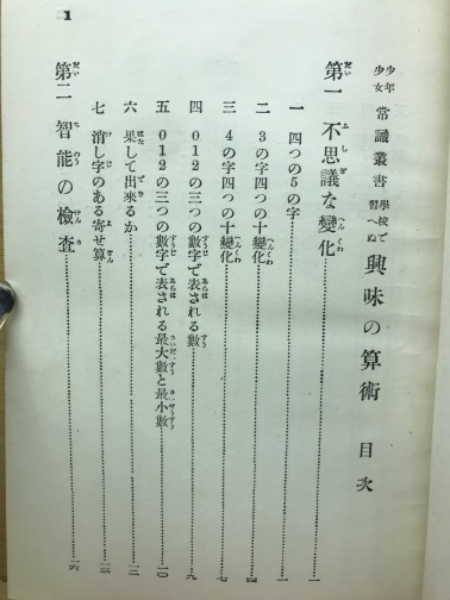 1
少年少女 常識叢書 學校で習へぬ 興味の算術 目次
第一 不思議な變化……一
一 四つの5の字……一
二 3の字四つの十變化……四
三 4の字四つの十變化……七
四 012の三つの數字で表される數……九
五 012の三つの數字で表される最大數と最小數……一〇
六 果して出來るか……一二
七 消し字のある寄せ算……一三
第二 智能の檢査……一六